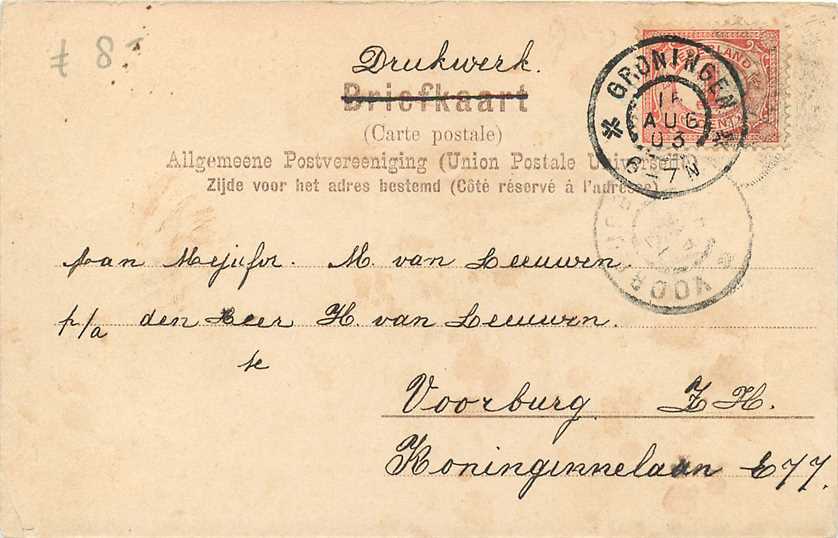 # 8-
Drukwerk.
Briefkaart
(Carte postale)
Allgemeene Postvereeniging (Union Postale Universelle)
Zijde voor het adres bestemd (Côté réservé à l'adresse)
GRONINGEN
11
AUG
03
6-7N
VOORBURG
Aan Mejufvr. M. van Leeuwen.
p/a den Heer H. van Leeuwen.
te
Voorburg Z. H.
Koninginnelaan E77.